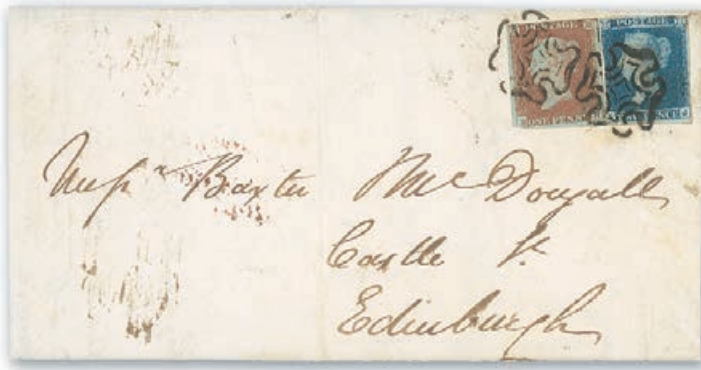 POSTAGE POSTAGE
ONE PENNY
Messrs Baxter McDougall
Castle St
Edinburgh